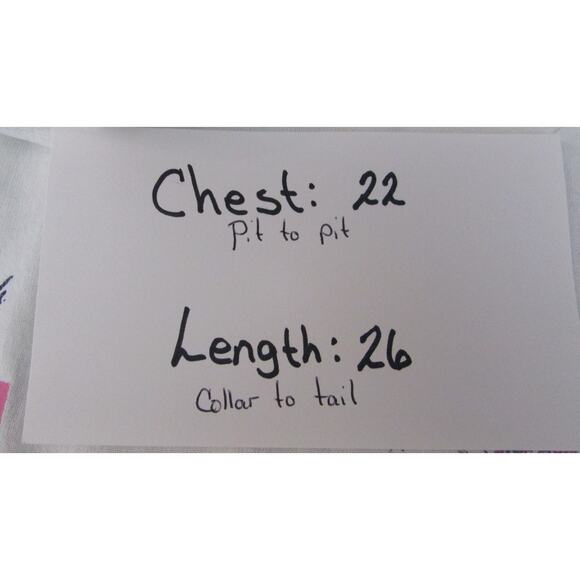 Chest: 22
Pit to pit
Length: 26
Collar to tail